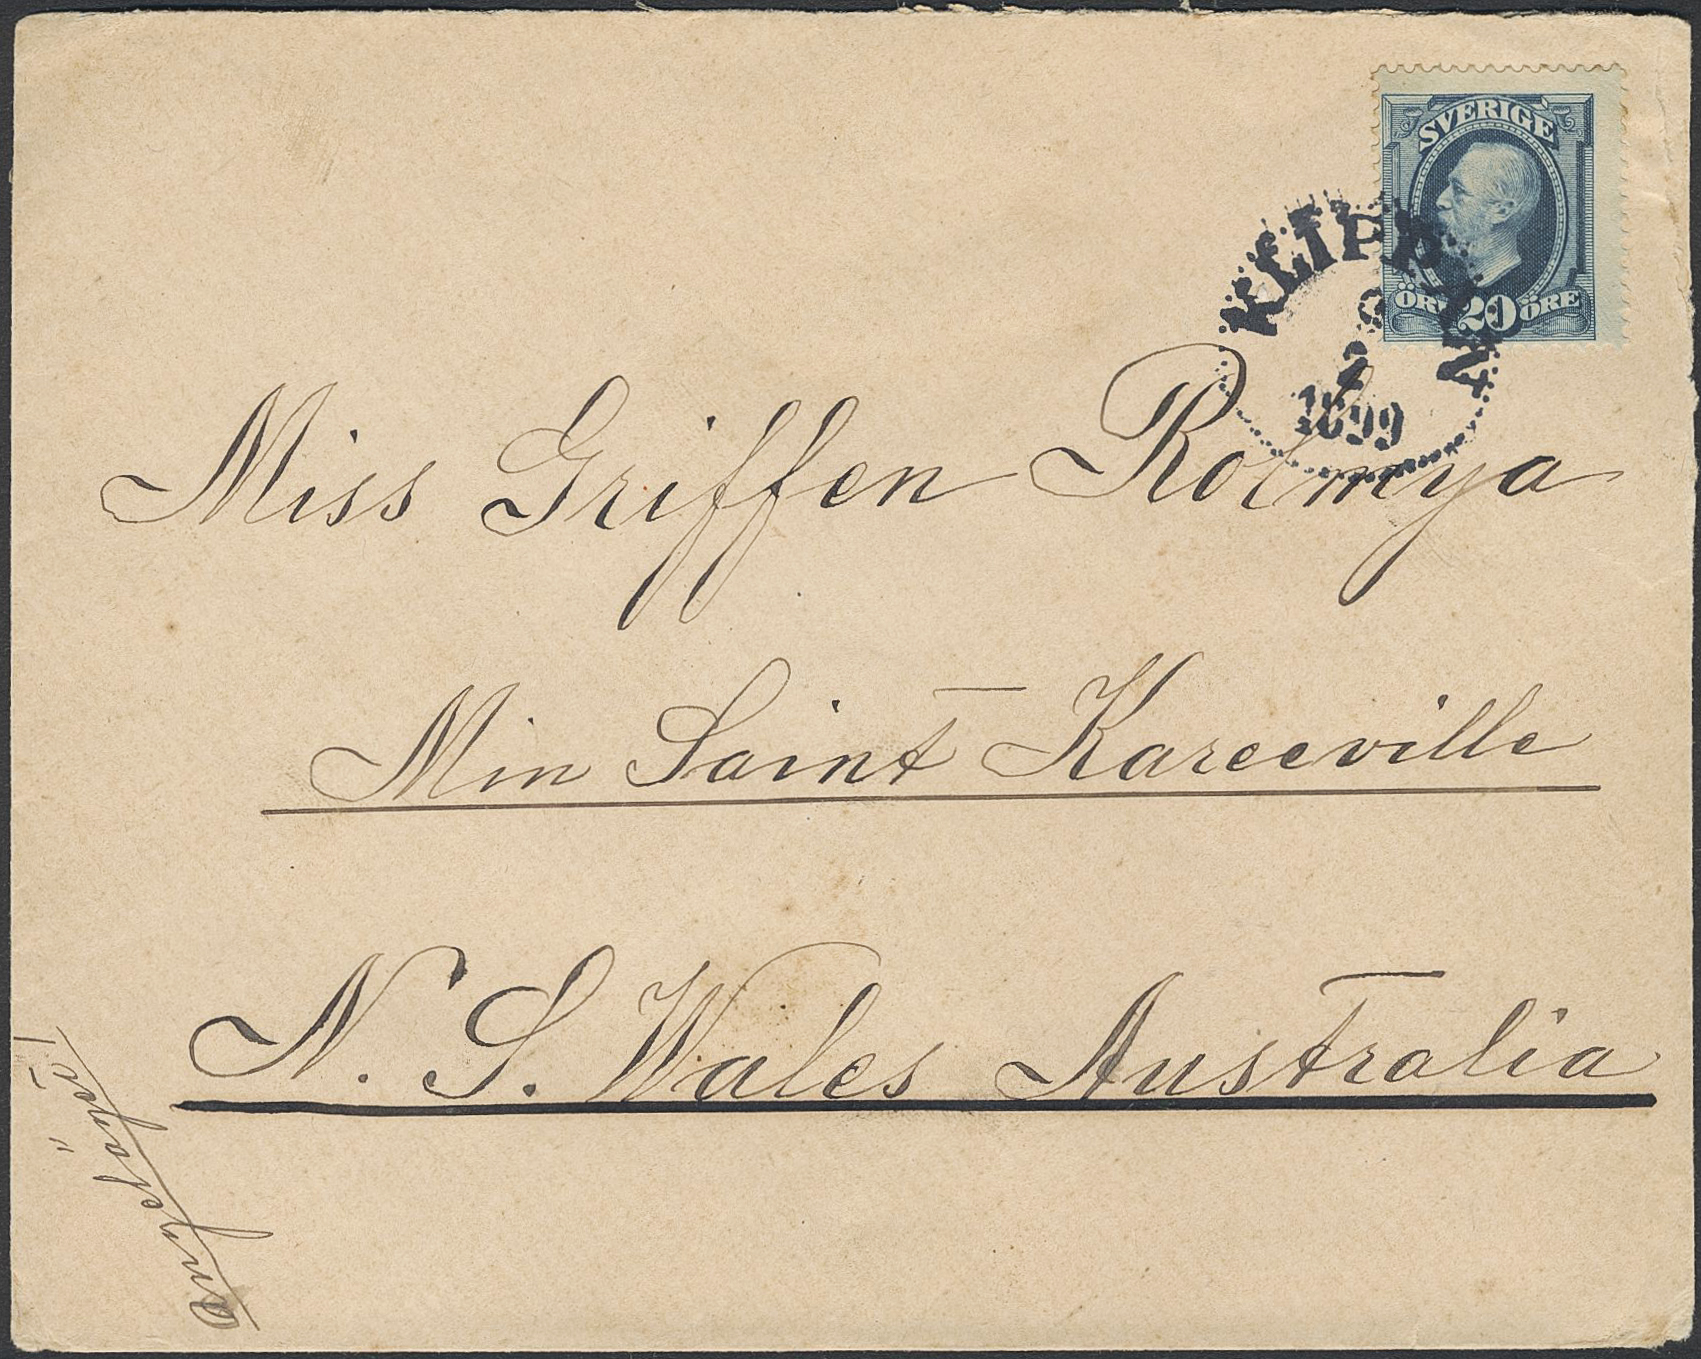 SVERIGE
ÖRE 20 ÖRE
KLIPPAN
2
1899
Miss Griffen Rolmya
Min Saint Kareeville
N. S. Wales Australia